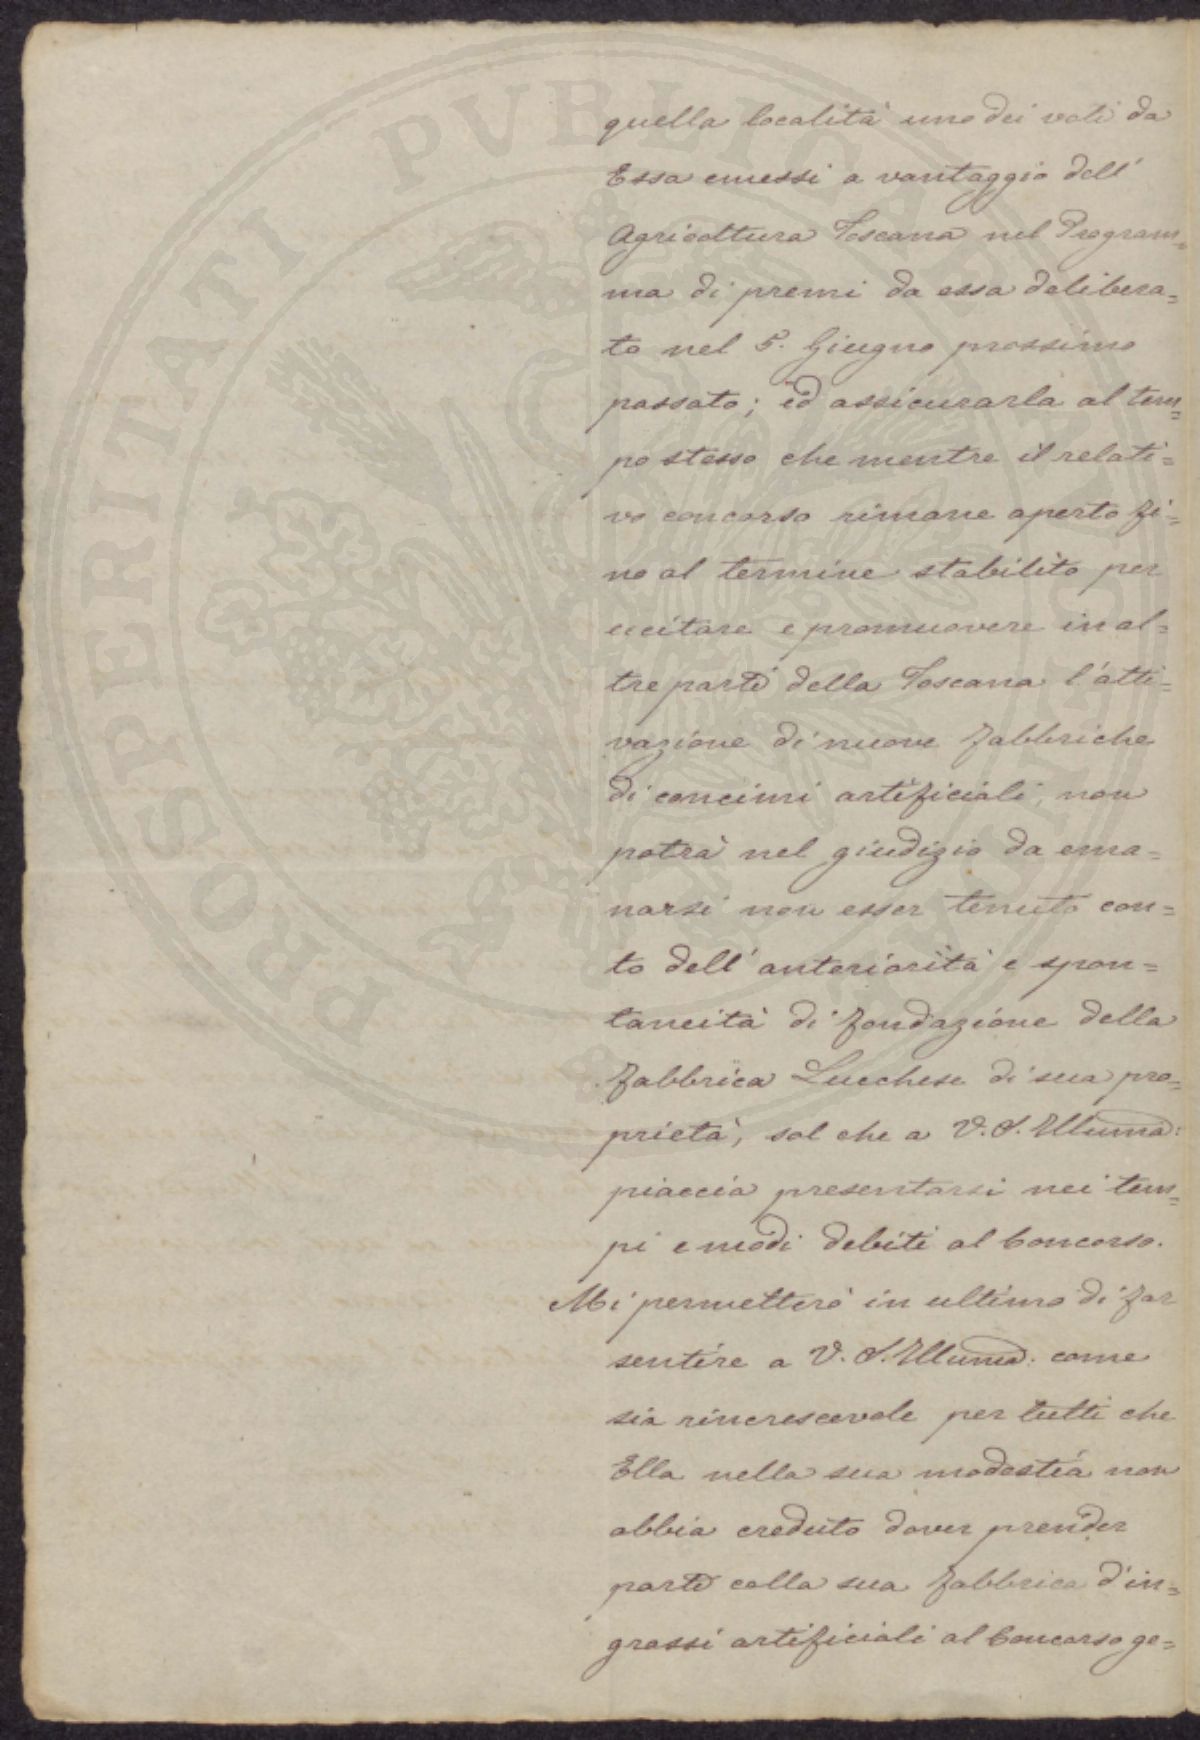 quella località uno dei voti da
Essa emessi a vantaggio dell'
Agricoltura Toscana nel Program=
ma di premi da essa delibera=
to nel 5. Giugno prossimo
passato; ed assicurarla al tem=
po stesso che mentre il relati=
vo concorso rimane aperto fi=
no al termine stabilito per
eccitare e promuovere in al=
tre parti della Toscana l'atti=
vazione di nuove fabbriche
di concimi artificiali, non
potrà nel giudizio da ema=
narsi non esser tenuto con=
to dell'anteriorità e spon=
taneità di fondazione della
fabbrica Lucchese di sua pro=
prietà, sol che a V. S. Illuma:
piaccia presentarsi nei tem=
pi e modi debiti al Concorso.
Mi permetterò in ultimo di far
sentire a V. S. Illuma: come
sia rincrescevole per tutti che
Ella nella sua modestia non
abbia creduto dover prender
parte colla sua fabbrica d'in=
grassi artificiali al Concorso ge=
PROSPERITATI PVBLICAE AVGENDAE